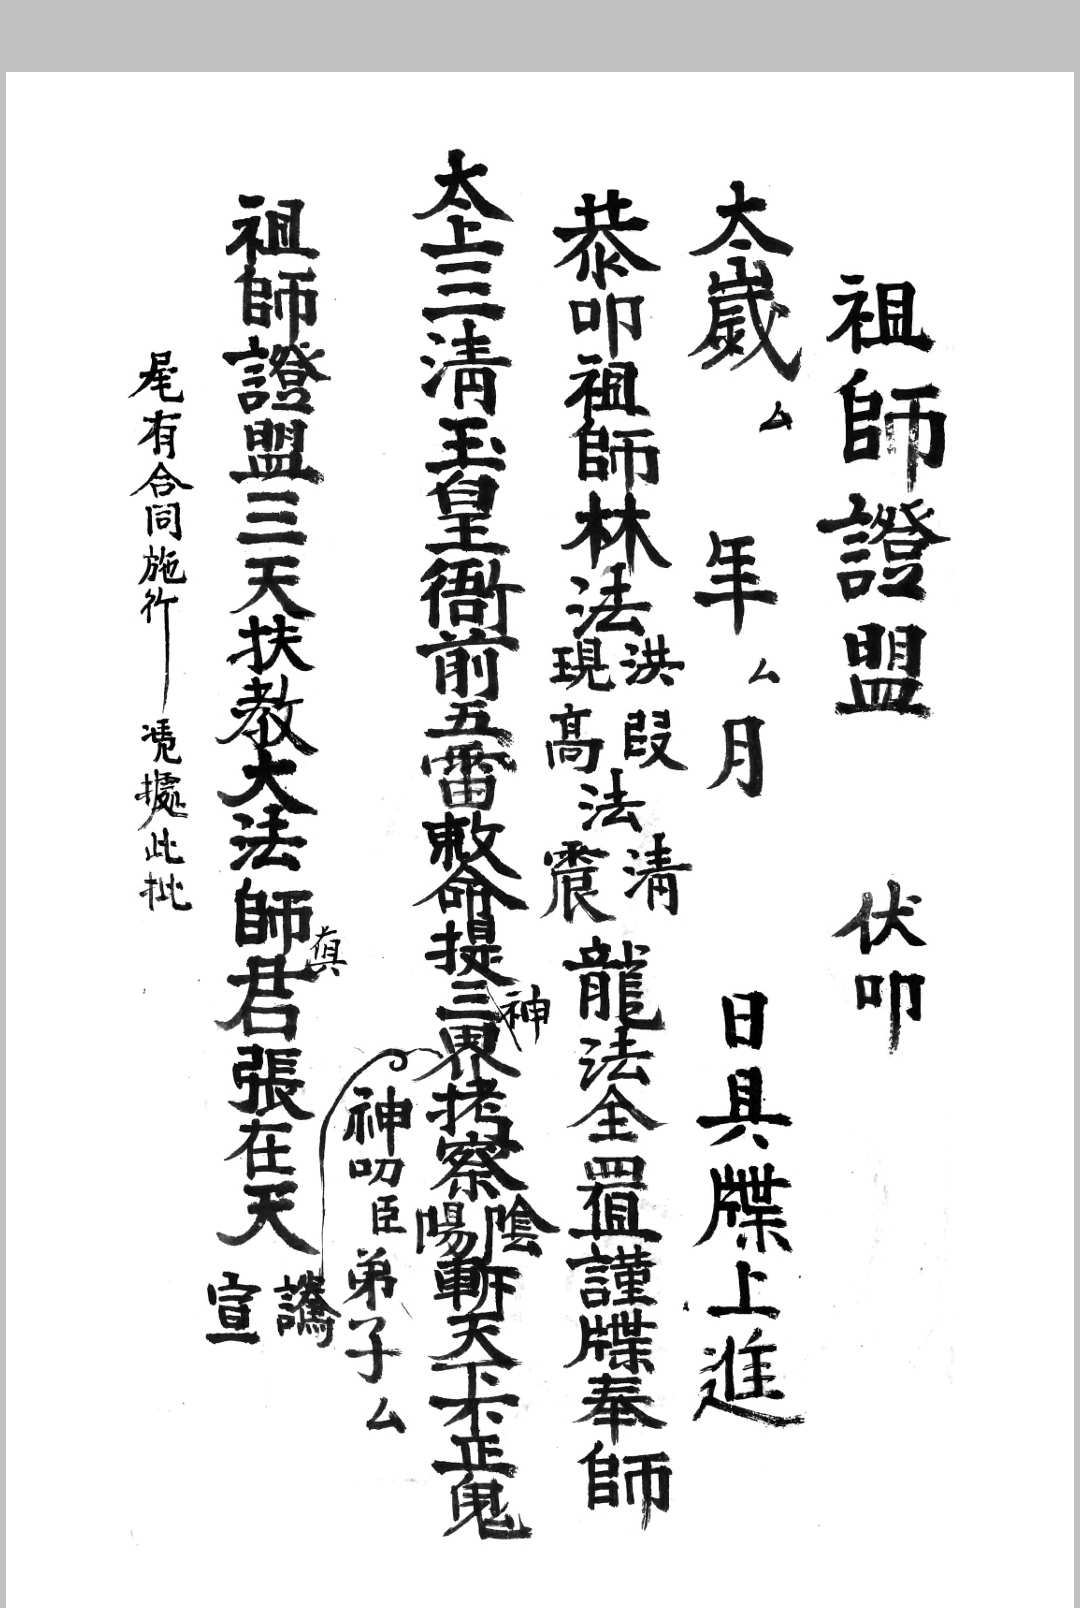 祖師證盟　伏叩
太歲ム年ム月　日具牒上進
恭叩祖師林法洪現叚高法清震龍法全置謹牒奉師
太上三清玉皇衙前五雷敕命提三界神拷察陰陽斬天下不正鬼
神叩臣弟子ム
祖師證盟三天扶教大法師真君張在天　宣
尾有合同施行　凴據此批